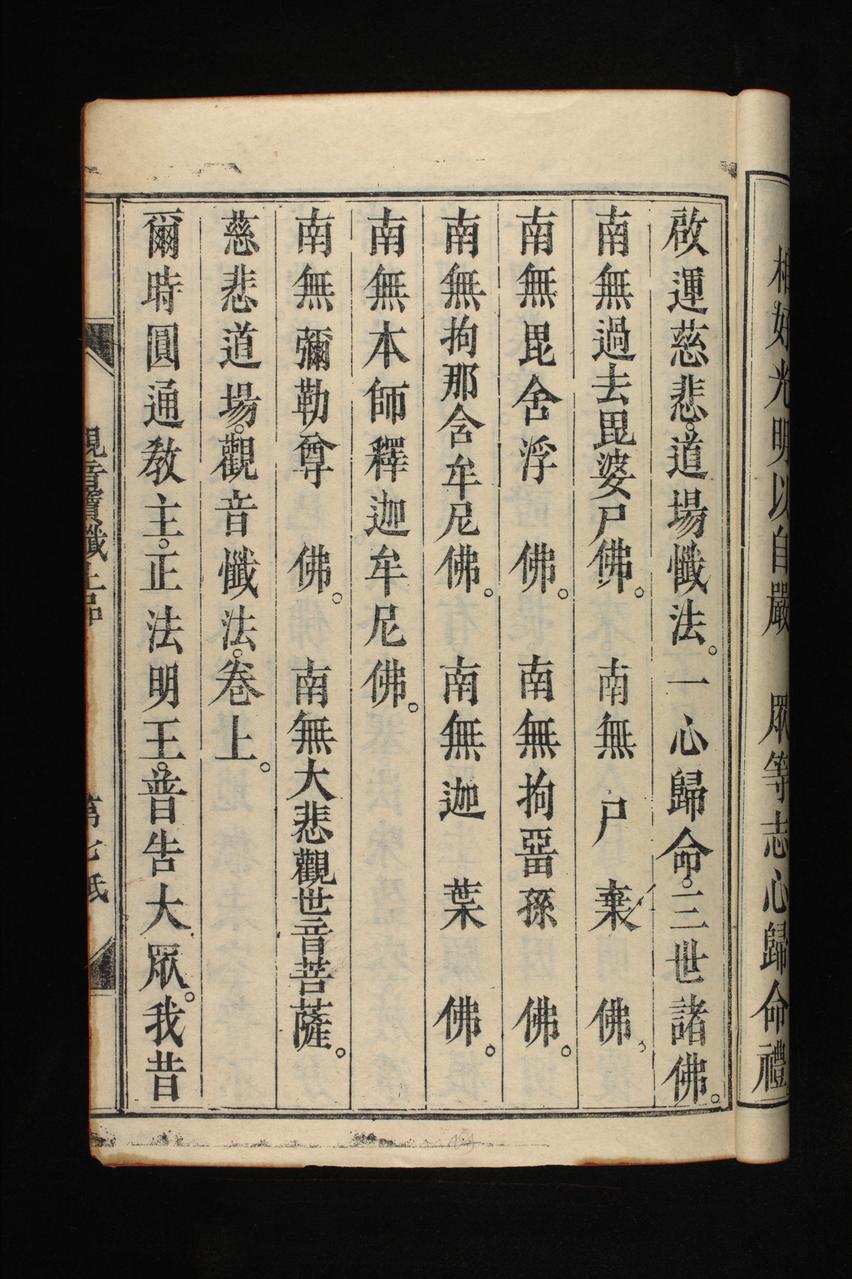 相好光明以自嚴　眾等志心歸命禮
啟運慈悲。道場懺法。一心歸命。三世諸佛。
南無過去毘婆尸佛。　南無　尸　棄　佛。
南無毘舍浮　佛。　南無拘畱孫　佛。
南無拘那含牟尼佛。　南無迦　葉　佛。
南無本師釋迦牟尼佛。
南無彌勒尊　佛。　南無大悲觀世音菩薩。
慈悲道場。觀音懺法。卷上。
爾時圓通教主。正法明王。普告大眾。我昔
觀音寶懺上卟　第七紙